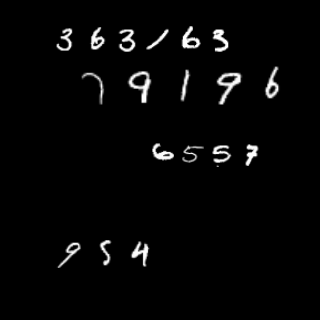 363163
79196
6557
954